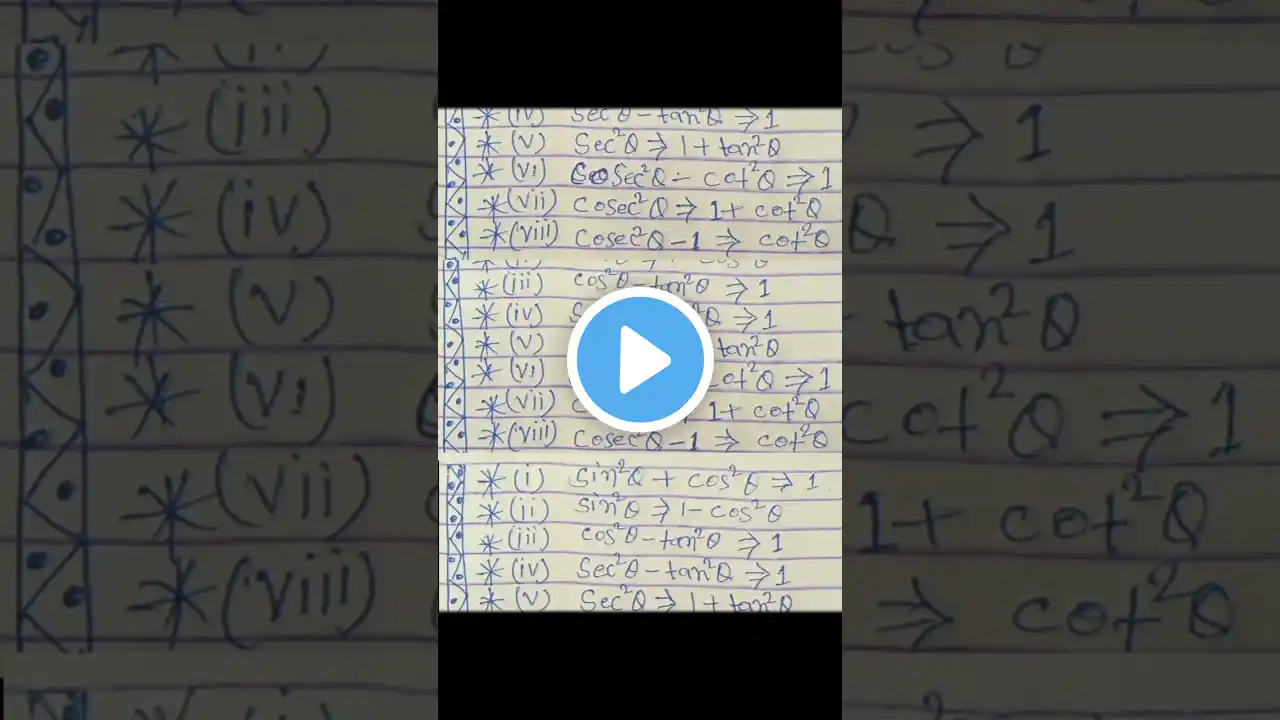 *(iv) Sec²θ - tan²θ ⇒ 1
*(v) Sec²θ ⇒ 1 + tan²θ
*(vi) CoSec²θ - cot²θ ⇒ 1
*(vii) cosec²θ ⇒ 1 + cot²θ
*(viii) cosec²θ - 1 ⇒ cot²θ
*(iii) cos²θ - tan²θ ⇒ 1
*(iv) θ ⇒ 1
*(v) tan²θ
*(vi) cot²θ ⇒ 1
*(vii) 1 + cot²θ
*(viii) cosec²θ - 1 ⇒ cot²θ
*(i) sin²θ + cos²θ ⇒ 1
*(ii) sin²θ ⇒ 1 - cos²θ
*(iii) cos²θ - tan²θ ⇒ 1
*(iv) Sec²θ - tan²θ ⇒ 1
*(v) Sec²θ ⇒ 1 + tan²θ